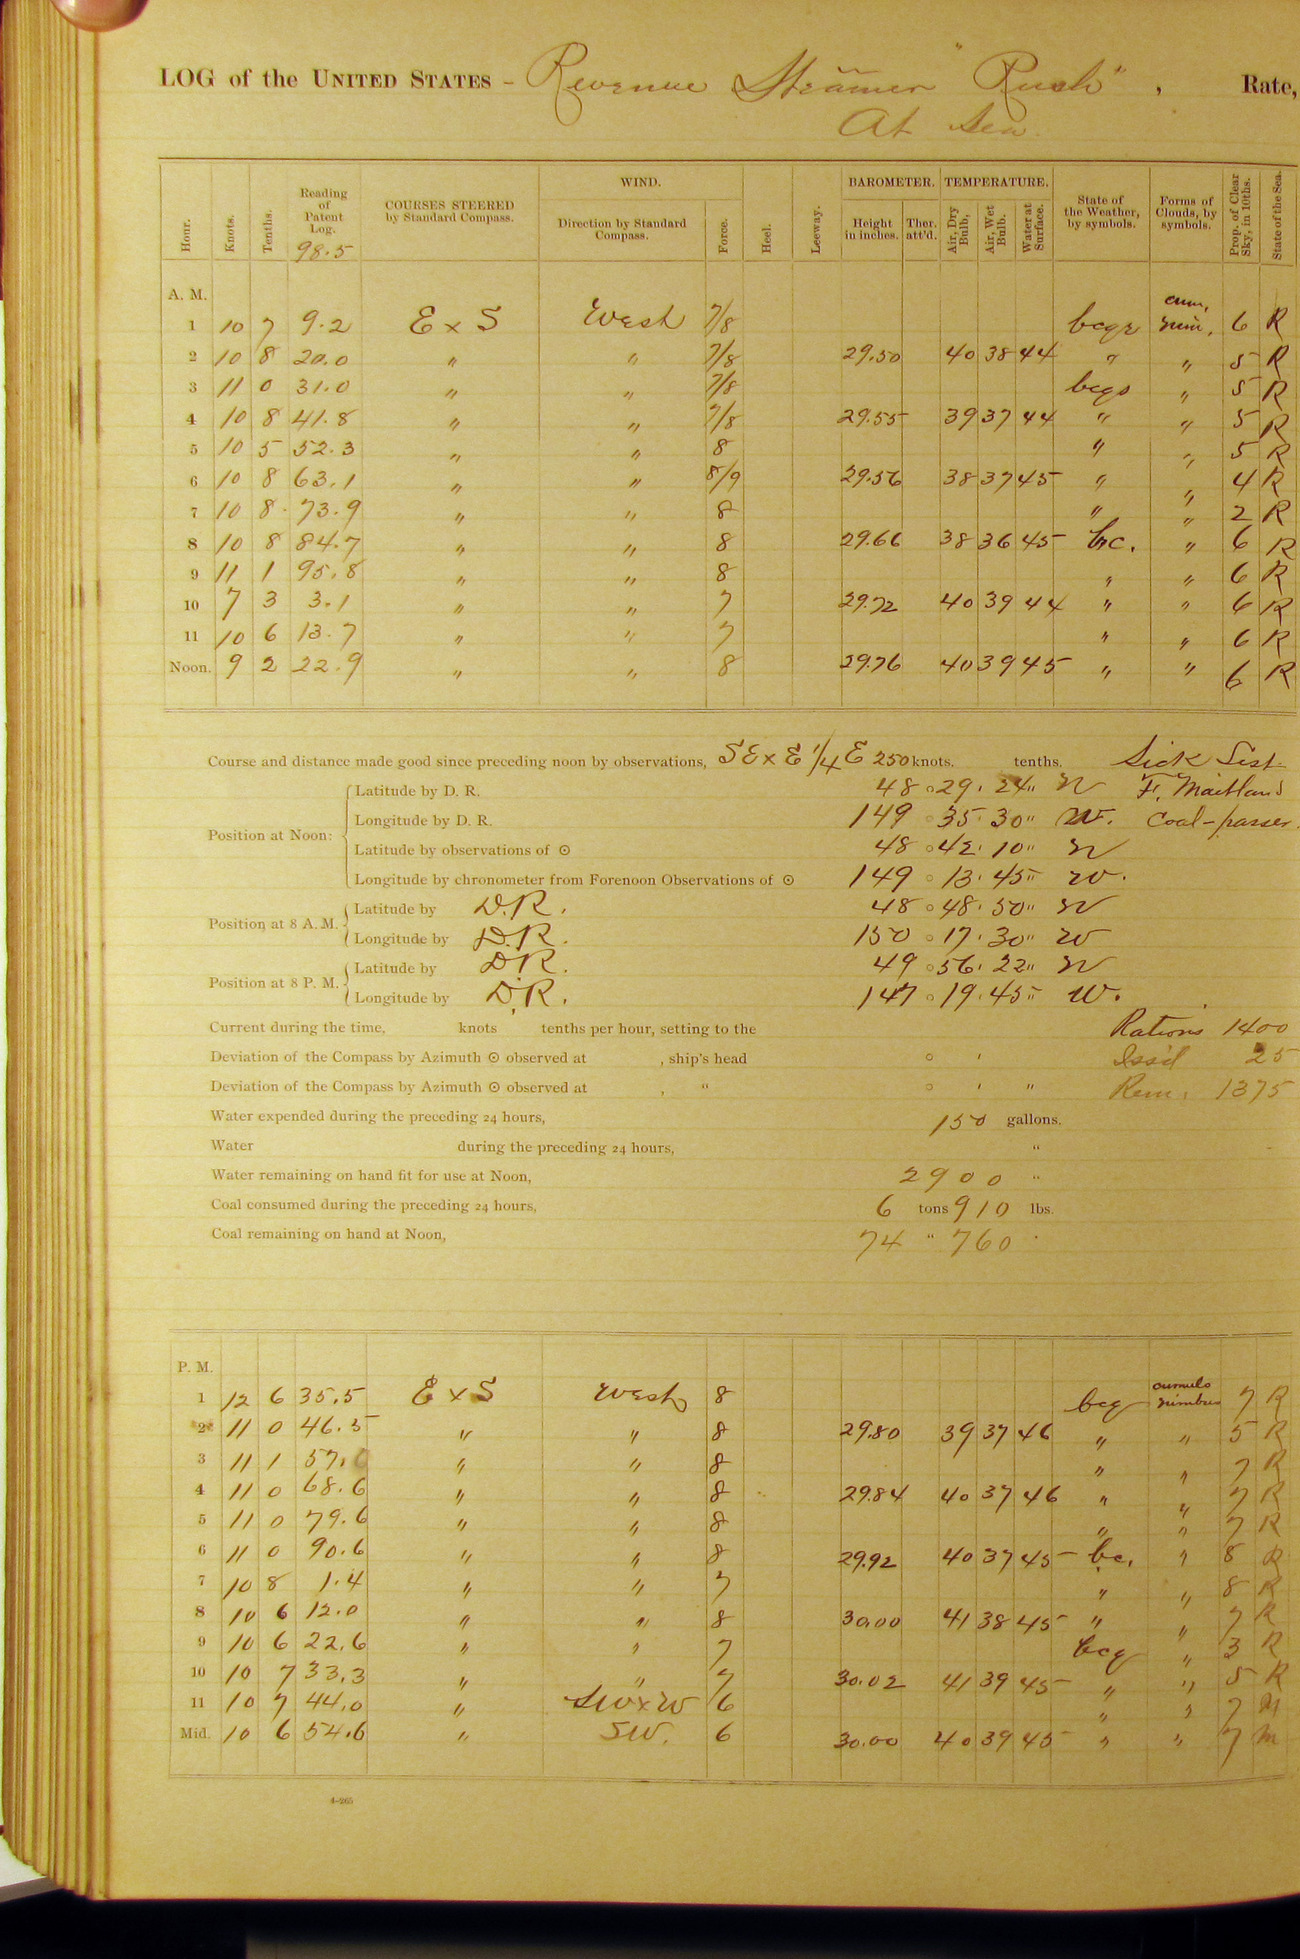 LOG of the UNITED STATES - Revenue Steamer "Rush", Rate,
At Sea.
Hour. Knots. Tenths. Reading of Patent Log. 98.5 COURSES STEERED by Standard Compass. WIND. Direction by Standard Compass. Force. Heel. Leeway. BAROMETER. Height in inches. Ther. att'd. TEMPERATURE. Air, Dry Bulb, Air, Wet Bulb. Water at Surface. State of the Weather, by symbols. Forms of Clouds, by symbols. Prop. of Clear Sky, in 10ths. State of the Sea.
A. M.
1 10 7 9.2 E x S West 7/8 bcqr cum. nim. 6 R
2 10 8 20.0 " " 7/8 29.50 40 38 44 " " 5 R
3 11 0 31.0 " " 7/8 bcqs " 5 R
4 10 8 41.8 " " 7/8 29.55 39 37 44 " " 5 R
5 10 5 52.3 " " 8 " " 5 R
6 10 8 63.1 " " 8/9 29.56 38 37 45 " " 4 R
7 10 8 73.9 " " 8 " " 2 R
8 10 8 84.7 " " 8 29.66 38 36 45 bc. " 6 R
9 11 1 95.8 " " 8 " " 6 R
10 7 3 3.1 " " 7 29.72 40 39 44 " " 6 R
11 10 6 13.7 " " 7 " " 6 R
Noon. 9 2 22.9 " " 8 29.76 40 39 45 " " 6 R
Course and distance made good since preceding noon by observations, SE x E 1/4 E 250 knots. tenths. Sick List
Latitude by D. R. 48 ° 29 ' 24 " N F. Maitland
Position at Noon: Longitude by D. R. 149 ° 35 ' 30 " W. Coal-passer
Latitude by observations of ☉ 48 ° 42 ' 10 " N
Longitude by chronometer from Forenoon Observations of ☉ 149 ° 13 ' 45 " W.
Position at 8 A. M. Latitude by D.R. 48 ° 48 ' 50 " N
Longitude by D.R. 150 ° 17 ' 30 " W
Position at 8 P. M. Latitude by D.R. 49 ° 56 ' 22 " N
Longitude by D.R. 147 ° 19 ' 45 " W.
Current during the time, knots tenths per hour, setting to the Rations 1400
Deviation of the Compass by Azimuth ☉ observed at , ship's head ° ' Iss'd 25
Deviation of the Compass by Azimuth ☉ observed at , " ° ' " Rem. 1375
Water expended during the preceding 24 hours, 150 gallons.
Water during the preceding 24 hours, "
Water remaining on hand fit for use at Noon, 2900 "
Coal consumed during the preceding 24 hours, 6 tons 910 lbs.
Coal remaining on hand at Noon, 74 " 760 "
P. M.
1 12 6 35.5 E x S West 8 bcq cumulo nimbus 7 R
2 11 0 46.5 " " 8 29.80 39 37 46 " " 5 R
3 11 1 57.6 " " 8 " " 7 R
4 11 0 68.6 " " 8 29.84 40 37 46 " " 7 R
5 11 0 79.6 " " 8 " " 7 R
6 11 0 90.6 " " 8 29.92 40 37 45 bc. " 8 R
7 10 8 1.4 " " 7 " " 8 R
8 10 6 12.0 " " 8 30.00 41 38 45 " " 7 R
9 10 6 22.6 " " 7 bcq " 3 R
10 10 7 33.3 " " 7 30.02 41 39 45 " " 5 R
11 10 7 44.0 " SW x W 6 " " 7 M
Mid. 10 6 54.6 " SW. 6 30.00 40 39 45 " " 7 M
4-265